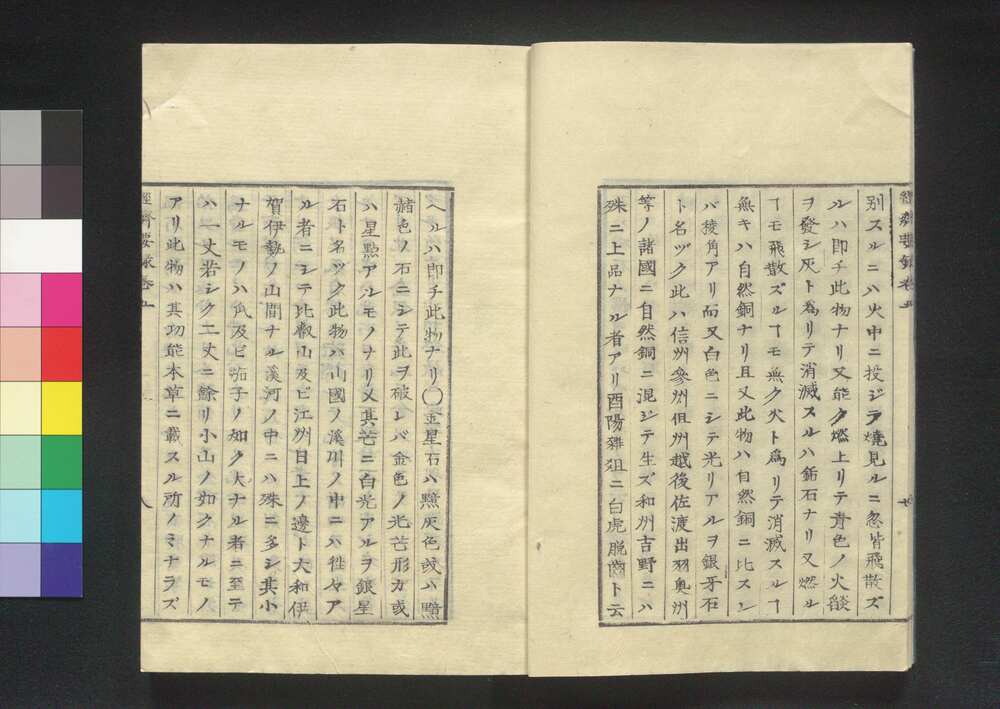 別スルニハ火中ニ投ジテ燒見ルニ忽皆飛散ズ
ルハ即チ此物ナリ又能ク燃上リテ青色ノ火燄
ヲ發シ灰ト爲リテ消滅スルハ鉐石ナリ又燃ル
ヿモ飛散ズルヿモ無ク火ト爲リテ消滅スルヿ
無キハ自然銅ナリ且又此物ハ自然銅ニ比スレ
バ稜角アリ而又白色ニシテ光リアルヲ銀牙石
ト名ヅク此ハ信州參州但州越後佐渡出羽奥州
等ノ諸國ニ自然銅ニ混ジテ生ズ和州吉野ニハ
殊ニ上品ナル者アリ酉陽雜俎ニ白虎脱齒ト云
ヘルハ即チ此物ナリ〇金星石ハ黯灰色或ハ黯
赭色ノ石ニシテ此ヲ破レバ金色ノ光芒形カ或
ハ星點アルモノナリ又其芒ニ白光アルヲ銀星
石ト名ヅク此物ハ山國ノ溪川ノ中ニハ徃々ア
ル者ニシテ比叡山及ビ江州日上ノ邊ト大和伊
賀伊勢ノ山間ナル溪河ノ中ニハ殊ニ多シ其小
ナルモノハ瓜及ビ茄子ノ如ク大ナル者ニ至テ
ハ一丈若シク二丈ニ餘リ小山ノ如クナルモノ
アリ此物ハ其功能本草ニ載スル所ノミナラズ
經濟要錄卷五
八